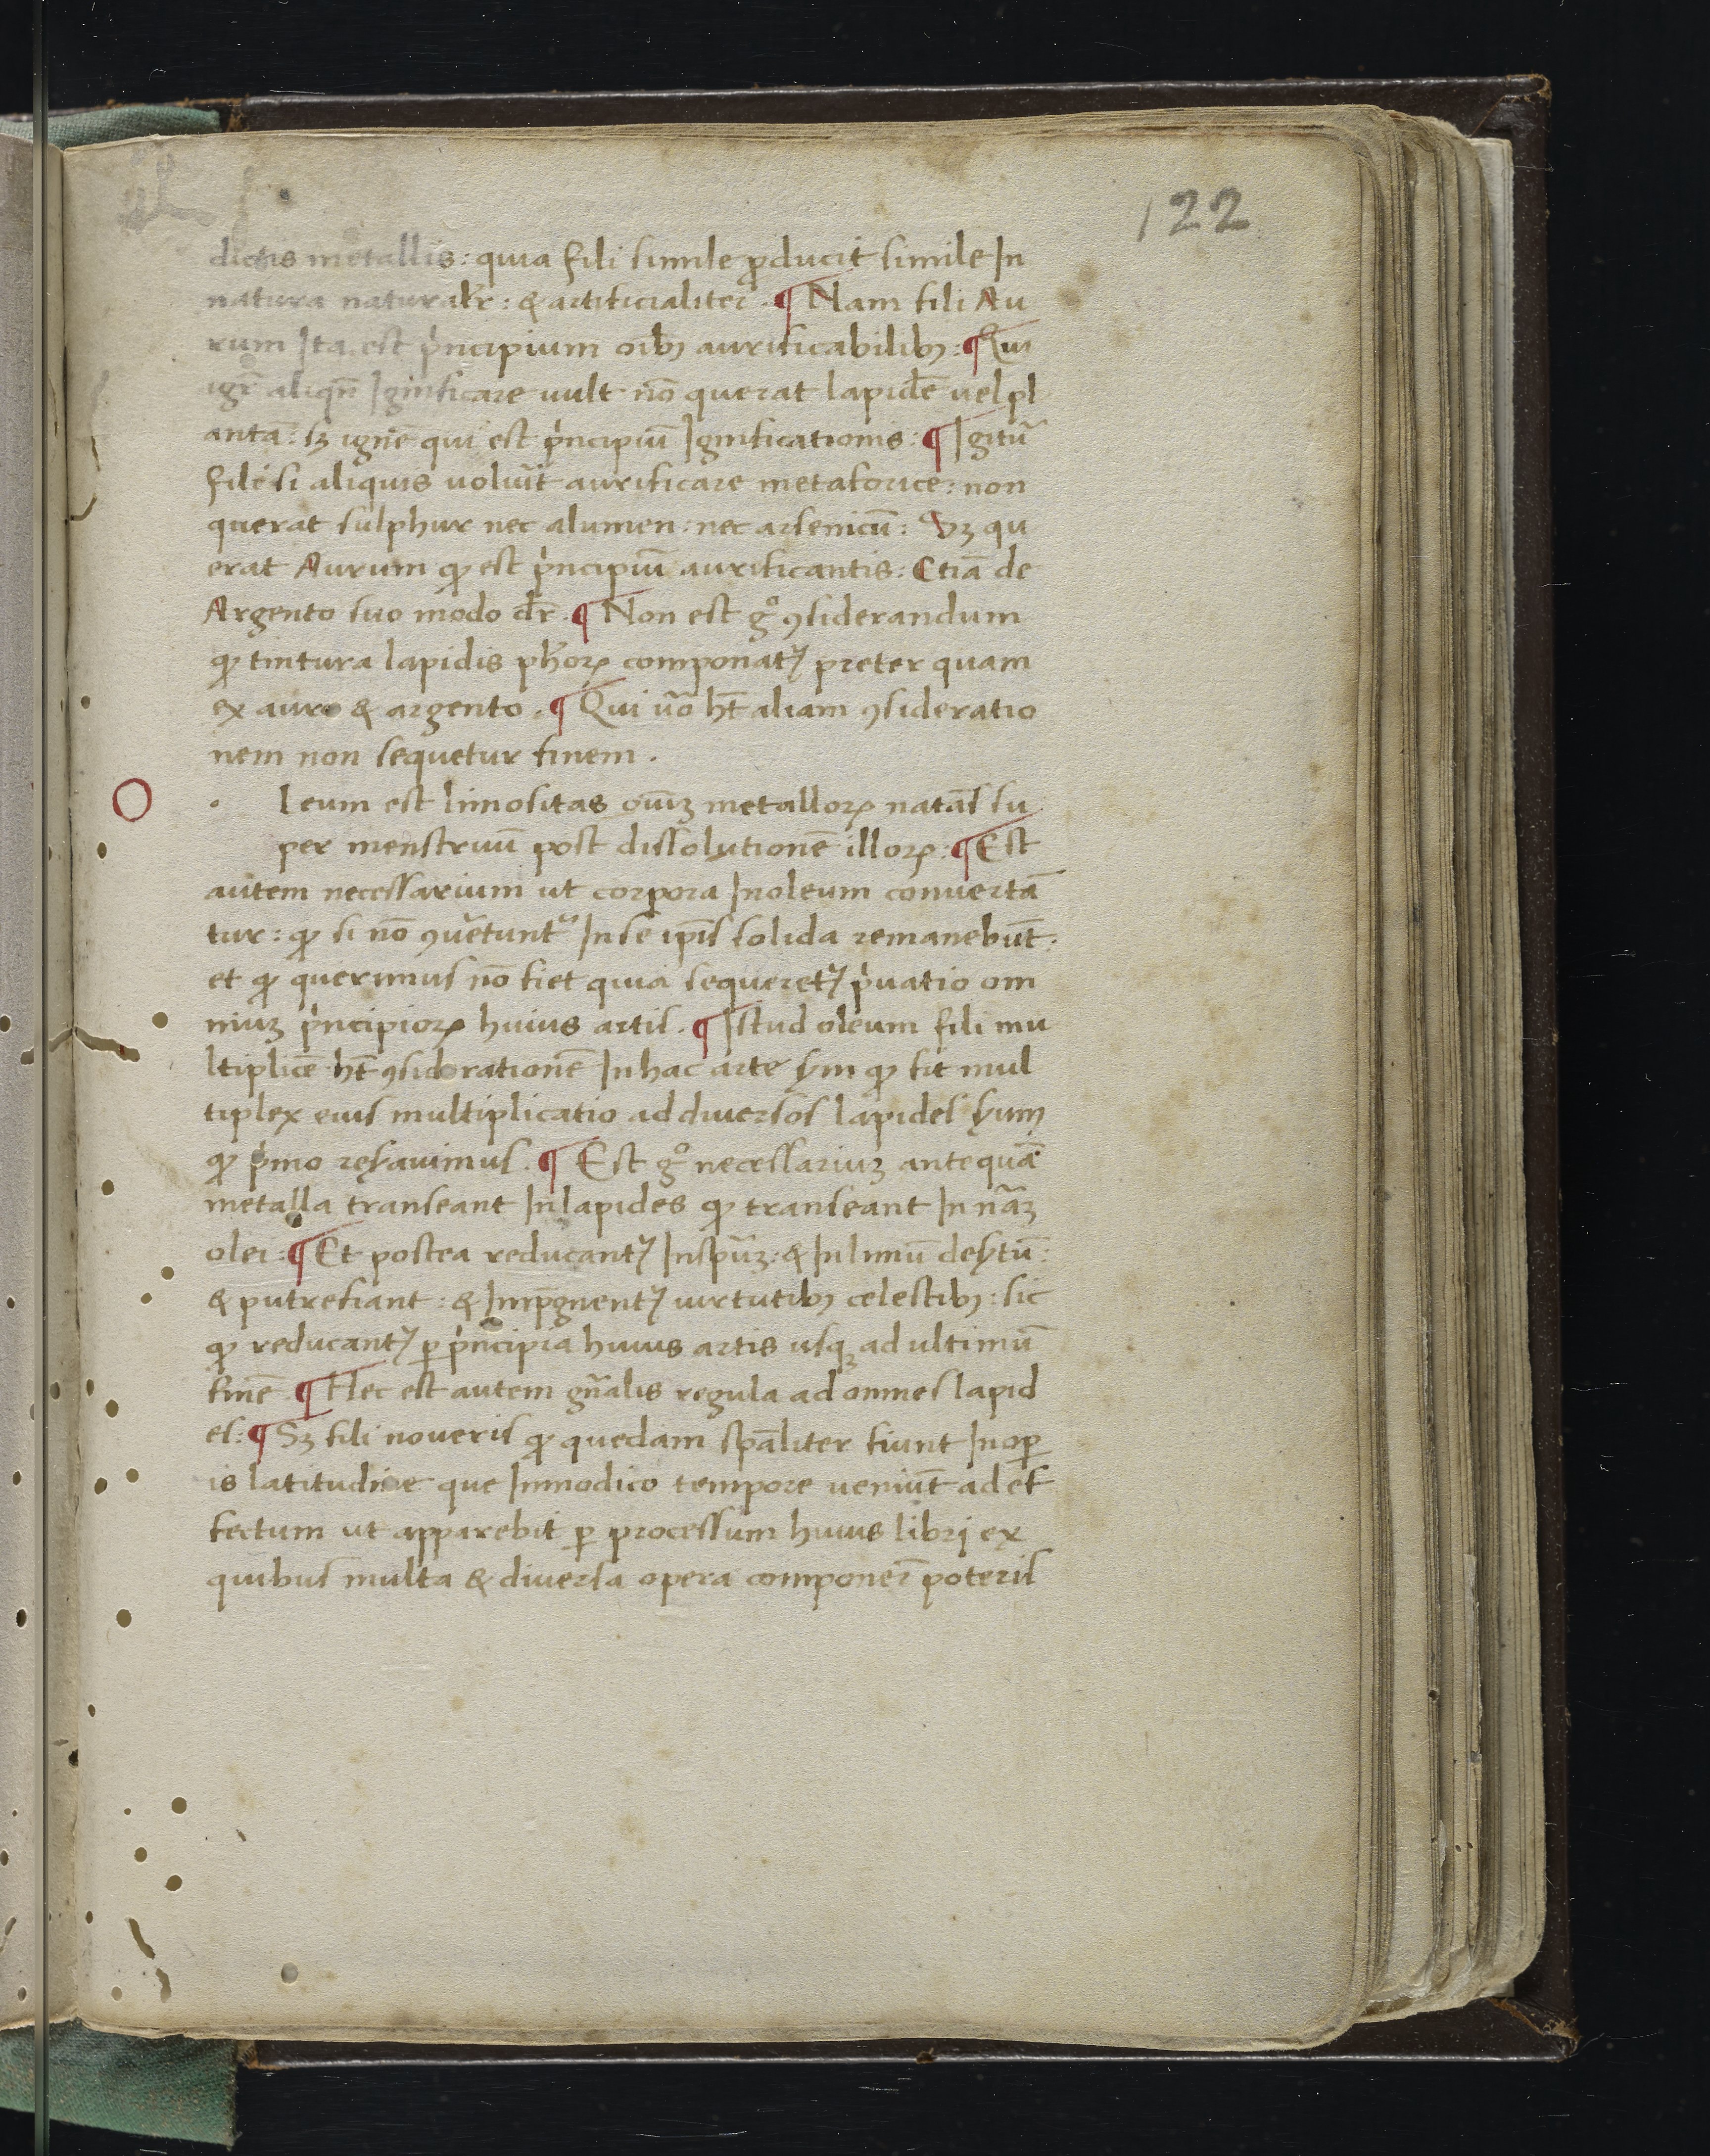 122
dictis metallis: quia fili simile ꝓducit simile In
natura naturalr̄: & artificialiter. ¶ Nam fili Au
rum Ita est pͥncipium oībꝫ aurificabilibꝫ: ¶ Qui
igr̄ aliqn̄ Ignificare uult nō querat lapidē uel pl
anta: sꝫ ignē qui est pͥncipiū Ignificationis: ¶ Igitũ
fili si aliquis uolũit aurificare metaforice: non
querat sulphur nec alumen: nec arsenicū: Sꝫ qu
erat Aurum ꝙ est pͥncipiū aurificantis: Etiā de
Argento suo modo dr̄. ¶ Non est gͦ ꝯsiderandum
ꝙ tintura lapidis ph̄oꝝ componatᷣ preter quam
ex auro & argento. ¶ Qui ũo ht̄ aliam ꝯsideratio
nem non sequetur finem.
O leum est limositas oīuꝫ metalloꝝ natās su
per menstruū post dissolutionē illoꝝ: ¶ Est
autem necessarium ut corpora Inoleum conuertā
tur: ꝙ si nō ꝯũetuntᷣ In se ip̄is solida remanebūt:
et ꝙ querimus nō fiet quia sequeretᷣ pͥuatio om
niuꝫ pͥncipioꝝ huius artis. ¶ Istud oleum fili mu
ltiplicē ht̄ ꝯsiderationē In hac arte ẜm ꝙ fit mul
tiplex eius multiplicatio ad diuersos lapides ẜum
ꝙ pͥmo reẜauimus. ¶ Est gͦ necessariuꝫ antequā
metalla transeant In lapides ꝙ transeant In nāꝫ
olei: ¶ Et postea reducantᷣ Inspūꝫ: & In limū deẜtū:
& putrefiant: & Imp̄gnentᷣ uirtutibꝫ celestibꝫ: sic
ꝙ reducantᷣ ꝑ pͥncipia huius artis usqꝫ ad ultimū
finē. ¶ Hec est autem gn̄alis regula ad omnes lapid
es: ¶ Sꝫ fili noueris ꝙ quedam sp̄aliter fiunt In oꝑ
is latitudine que Inmodico tempore ueniūt ad ef
fectum ut apparebit ꝑ processum huius libri ex
quibus multa & diuersa opera componer̄ poteris